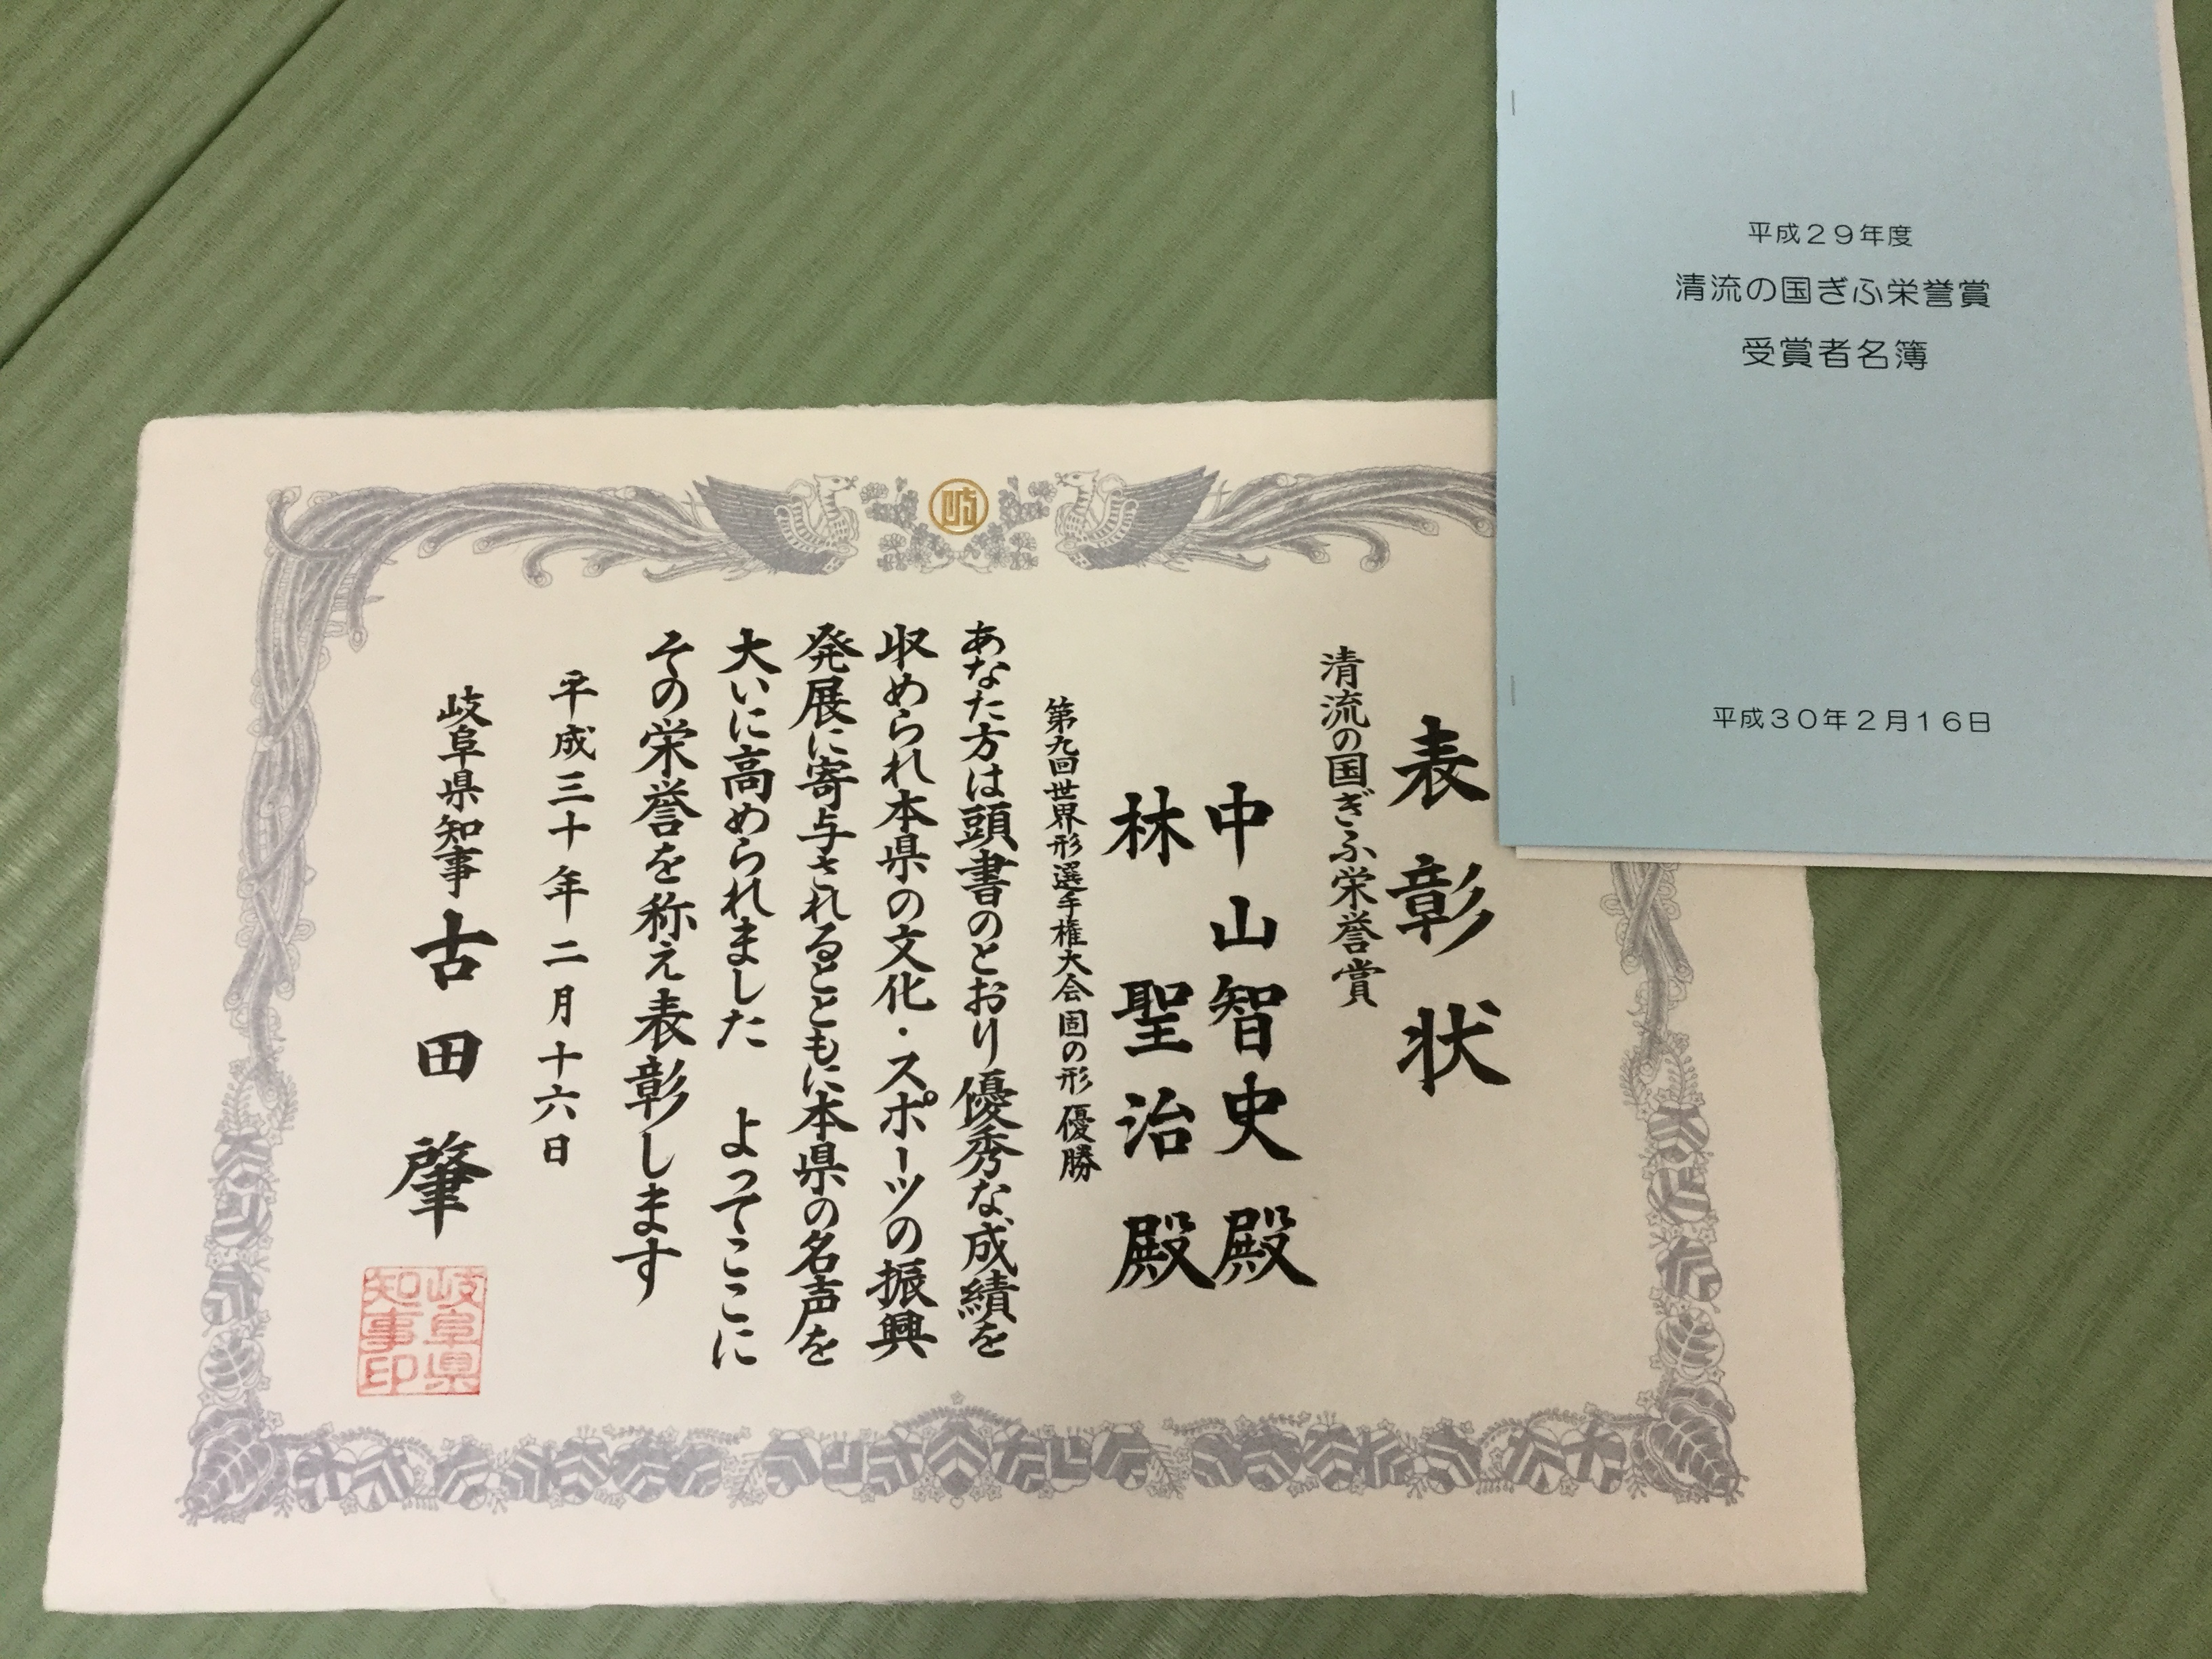 平成29年度
清流の国ぎふ栄誉賞
受賞者名簿
平成30年2月16日
岐
表彰状
清流の国ぎふ栄誉賞
中山智史殿
林聖治殿
第九回世界形選手権大会 固の形 優勝
あなた方は頭書のとおり優秀な成績を
収められ本県の文化・スポーツの振興
発展に寄与されるとともに本県の名声を
大いに高められました よってここに
その栄誉を称え表彰します
平成三十年二月十六日
岐阜県知事 古田肇
岐阜県
知事印